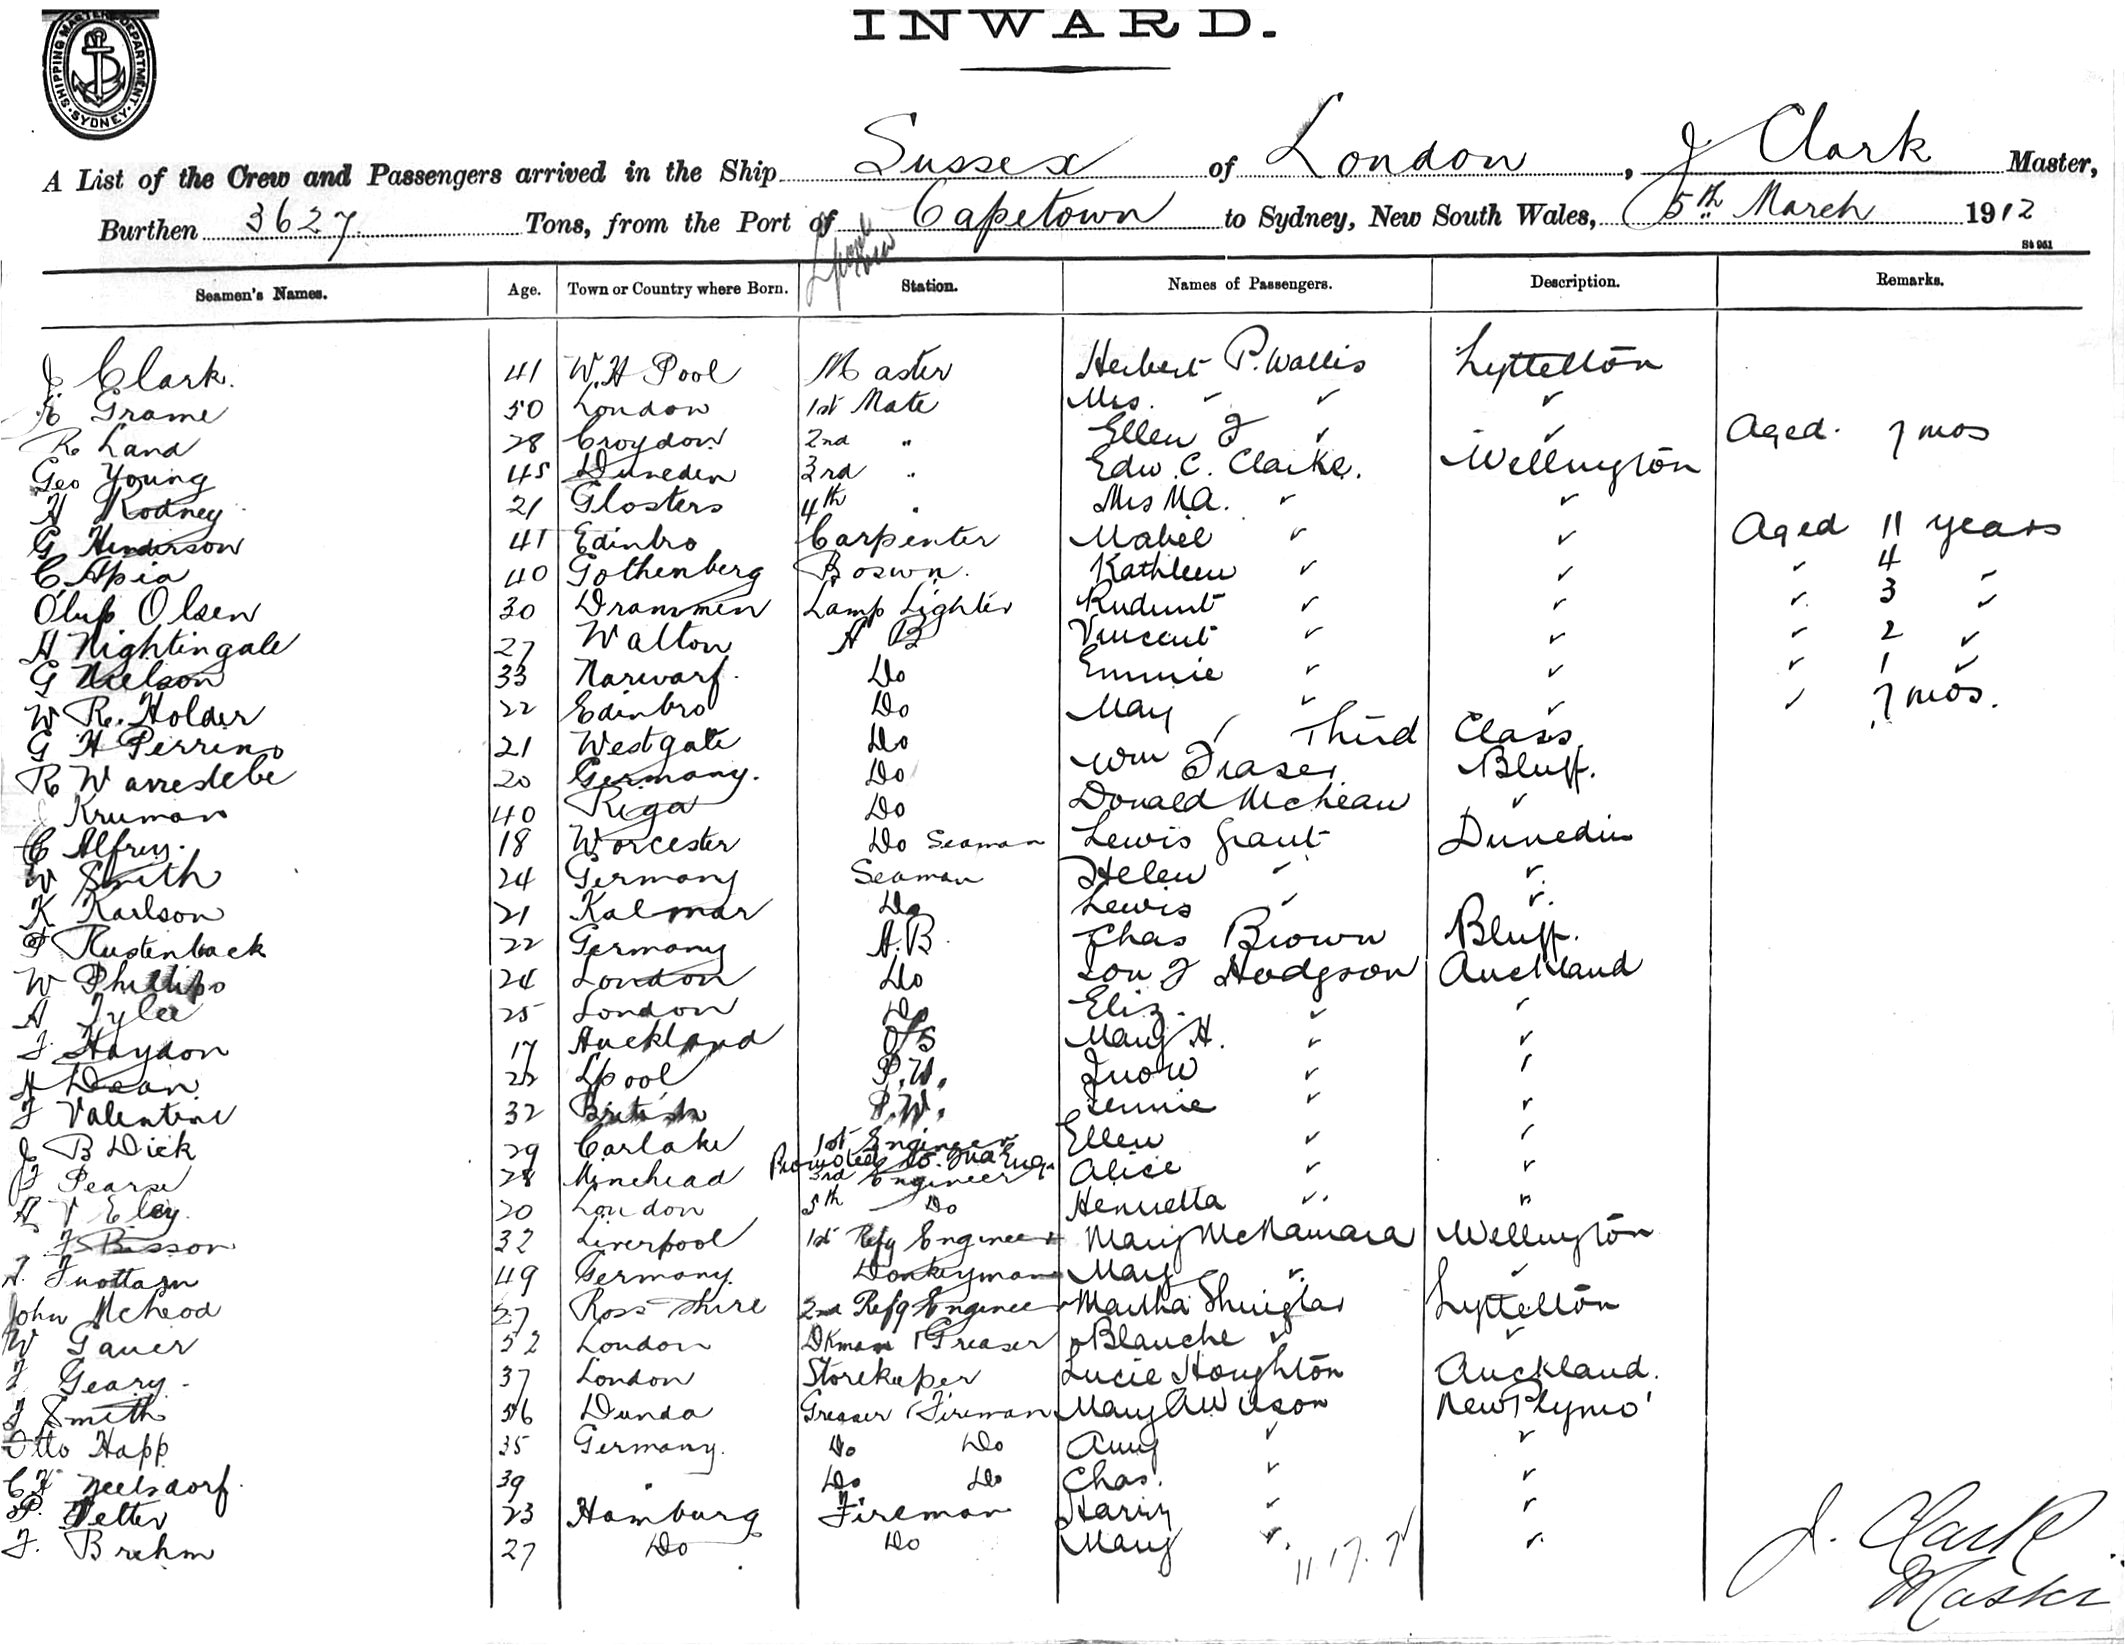 SHIPPING MASTER'S DEPARTMENT · SYDNEY ·
INWARD.
A List of the Crew and Passengers arrived in the Ship Sussex of London, J Clark Master,
Burthen 3627 Tons, from the Port of Capetown to Sydney, New South Wales, 5th March 1912
St 961
Seamen's Names. Age. Town or Country where Born. Station. Names of Passengers. Description. Remarks.
J Clark. 41 W.H Pool Master Herbert P. Wallis Lyttelton
Grame 50 London 1st Mate Mrs. " " "
R Land 28 Croydon 2nd " Ellen J " " Aged. 7 mos
Geo Young 45 Duneden 3rd " Edw. C. Clarke. Wellington
H Rodney 21 Glosters 4th " Mrs M.A. " "
G Henderson 41 Edinbro Carpenter Mabel " " Aged 11 years
C Apia 40 Gothenberg Boswn. Kathleen " " " 4 "
Oluf Olsen 30 Drammen Lamp Lighter " " " 3 "
H Nightingale 27 Walton A B Vincent " " " 2 "
G Nielson 33 Narwarf. Do Emmie " " " 1 "
W R. Holder 22 Edinbro Do May " " " 7 mos.
G H Perrins 21 Westgate Do Third Class
R Warrestebe 20 Germany. Do Wm Fraser Bluff.
Kruman 40 Riga Do Donald McLean "
C Alfrey. 18 Worcester Do Seaman Lewis Grant Dunedin
W Smith 24 Germany Seaman Helen " "
K Karlson 21 Kalmar Do Lewis " "
F Rustenback 22 Germany A.B. Chas Brown Bluff.
W Phillips 24 London Do J Hodgson Auckland
A Tylee 25 London Do Eliz. " "
F Haydon 17 Auckland O/S Mary H. " "
A Dean 22 Lpool P.W. " "
F Valentine 32 British P.W. " "
J B Dick 29 Carlake 1st Engineer Ellen " "
F Pearse 28 Minehead Promoted to 2nd Eng. 3rd Engineer Alice " "
A V Eley. 20 London 5th Do Henrietta " "
F Bisson 32 Liverpool 1st Refg Engineer Mary McNamara Wellington
49 Germany. Donkeyman May " "
John McLeod 27 Ross shire 2nd Refg Engineer Martha Lyttelton
W Gauer 52 London Dkman / Greaser Blanche " "
F Geary. 37 London Storekeeper Lucie Houghton Auckland.
J Smith 56 Dunda Greaser / Fireman Mary A Wilson New Plymo'
Otto Happ 35 Germany. Do Do Amy " "
C F Neelsdorf. 39 " Do Do Chas. " "
P. Vetter 23 Hamburg Fireman Harry " "
F. Brehm 27 Do Do Mary " "
J. Clark
Master